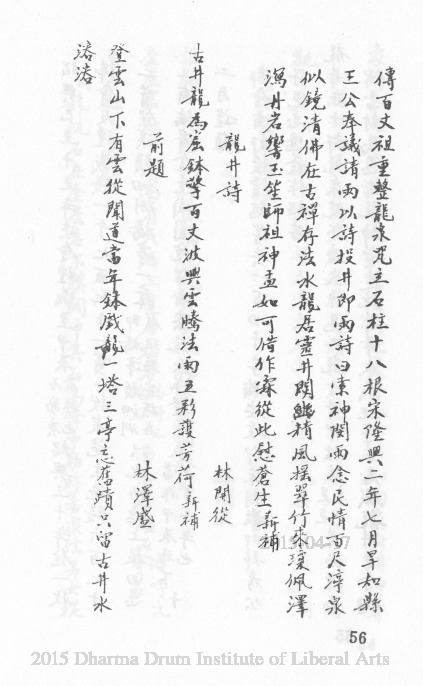 傳百丈祖重整龍泉完立石柱十八根宋隆興二年七月旱知縣
王公奉議請雨以詩投井即雨詩曰索神閔雨念民情百尺渟泉
似鏡清佛在古禪存法水龍居靈井閟幽精風搖翠竹來瓊佩澤
瀉丹岩響玉笙師祖神盂如可借作霖從此慰蒼生新補
龍井詩
林開從
古井龍為窟鉢擎百丈波興雲騰法雨五彩護芳荷新補
前題
林澤盛
登雲山下有雲從聞道當年鉢戲龍一塔三亭忘舊蹟只留古井水
溶溶
56
2015 Dharma Drum Institute of Liberal Arts